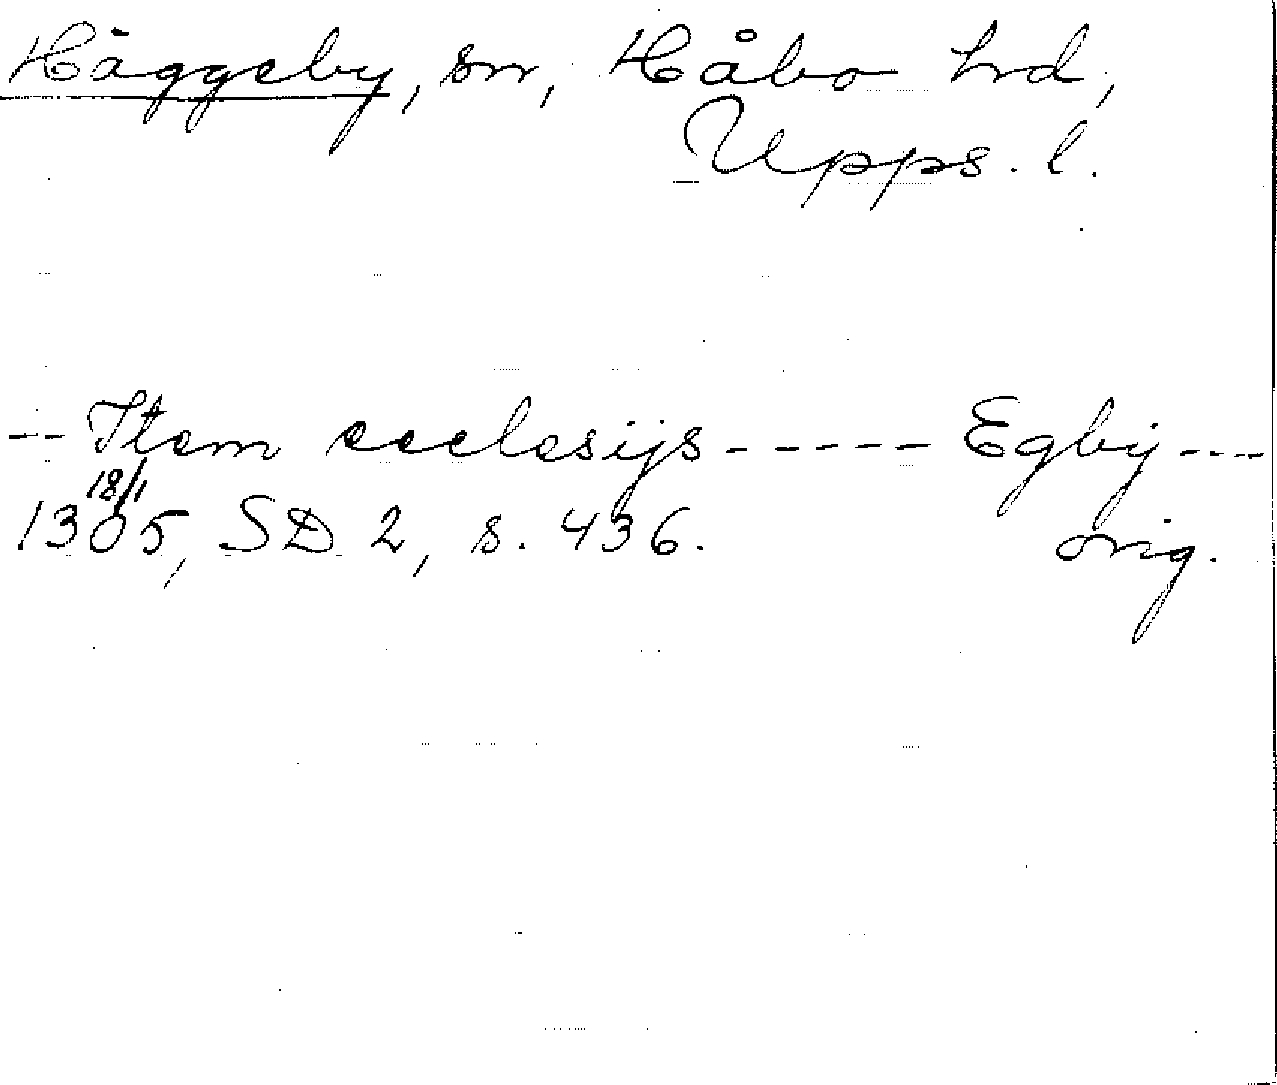 Häggeby, sn, Håbo hd,
Upps. l.
-- Item ecclesijs ----- Egby ---
18/1
1305, SD 2, s. 436. orig.